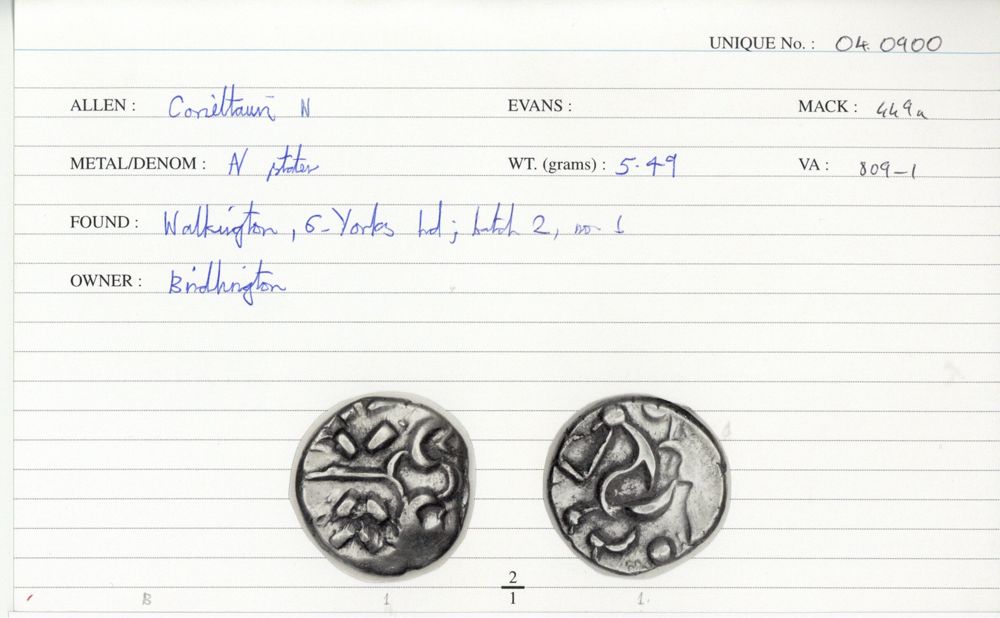 UNIQUE No. : 04.0900
ALLEN : Corieltauvi N EVANS : MACK : 449a
METAL/DENOM : N stater WT. (grams) : 5.49 VA : 809-1
FOUND : Walkington, E. Yorks hd; batch 2, no. 1
OWNER : Bridlington
2
1
B 1 1.